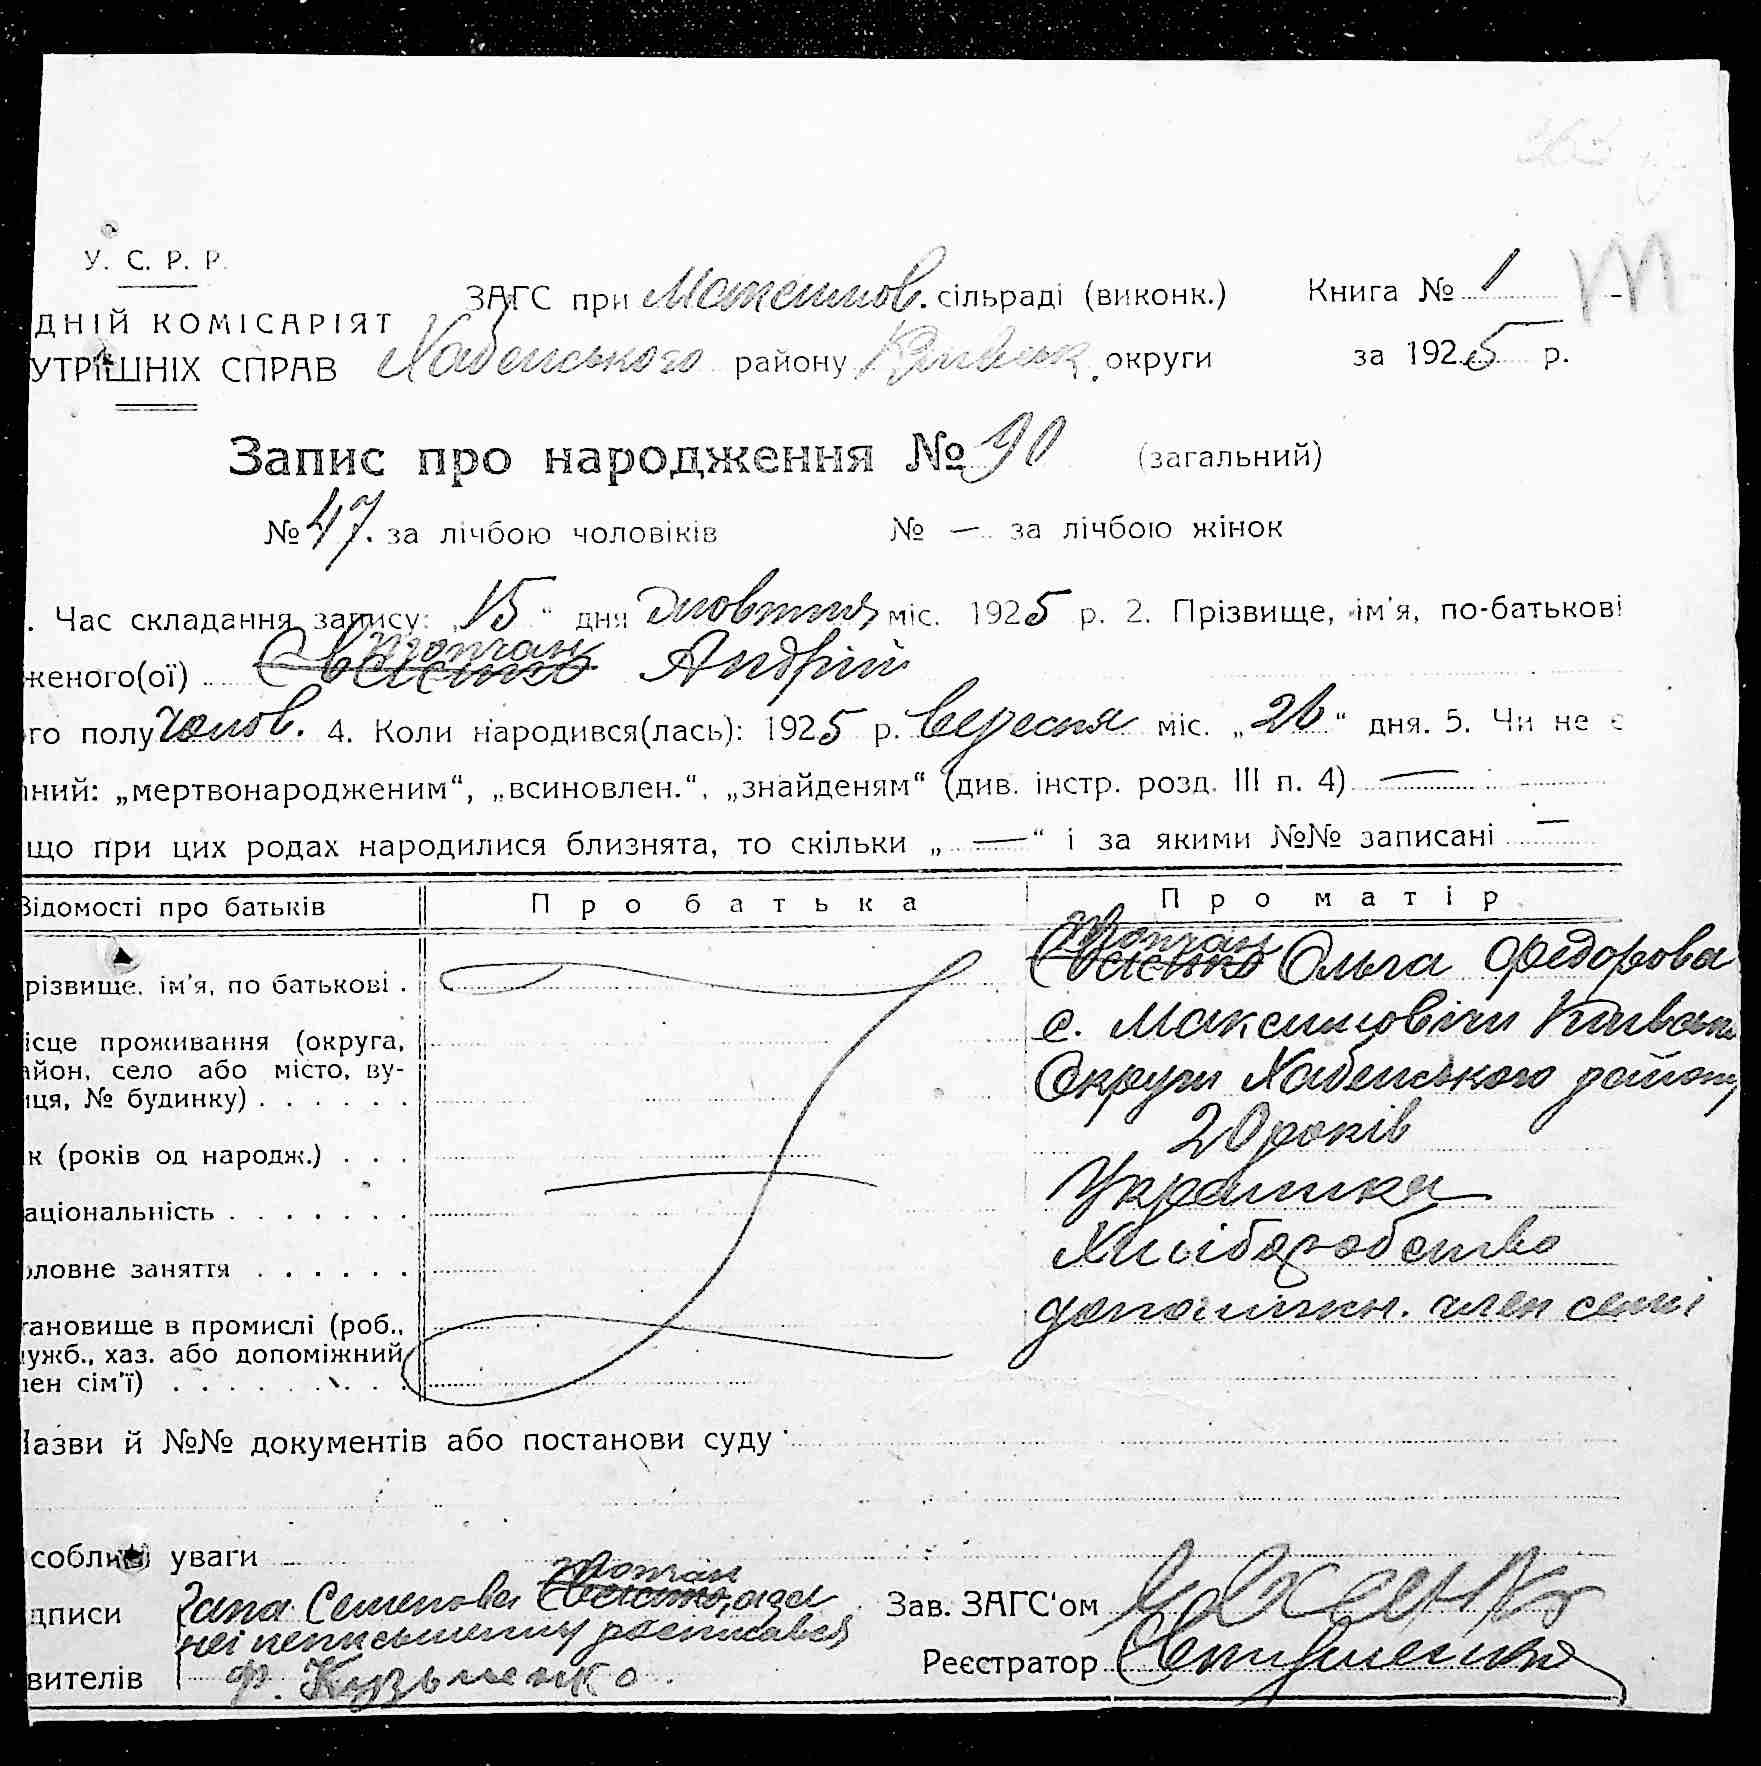 У. С. Р. Р.
ДНІЙ КОМІСАРІЯТ
УТРІШНІХ СПРАВ
ЗАГС при Максимов. сільраді (виконк.)
Хабенського району Київськ. округи
Книга № 1
за 1925 р.
Запис про народження № 90 (загальний)
№ 47. за лічбою чоловіків № — за лічбою жінок
. Час складання запису: „15“ дня жовтня міс. 1925 р. 2. Прізвище, ім'я, по-батькові
женого(ої) Андрій
го полу чолов. 4. Коли народився(лась): 1925 р. вересня міс. „26“ дня. 5. Чи не є
ний: „мертвонародженим“, „всиновлен.“, „знайденям“ (див. інстр. розд. III п. 4) —
що при цих родах народилися близнята, то скільки „—“ і за якими №№ записані —
Відомості про батьків Про батька Про матір
різвище, ім'я, по батькові . Ольга Федорова
ісце проживання (округа, с. Максимовичи Київськ
айон, село або місто, ву- Округи Хабенського району
иця, № будинку) . . . . . .
к (років од народж.) . . . 20 років
аціональність . . . . . . . Українка
оловне заняття . . . . . . Хліборобство
тановище в промислі (роб., допоміжн. член семі
ужб., хаз. або допоміжний
лен сім'ї) . . . . . . . .
Назви й №№ документів або постанови суду
соблив уваги
дписи Семенова
неі неписьменну росписався
вителів Ф. Кузьменко
Зав. ЗАГС'ом
Реєстратор